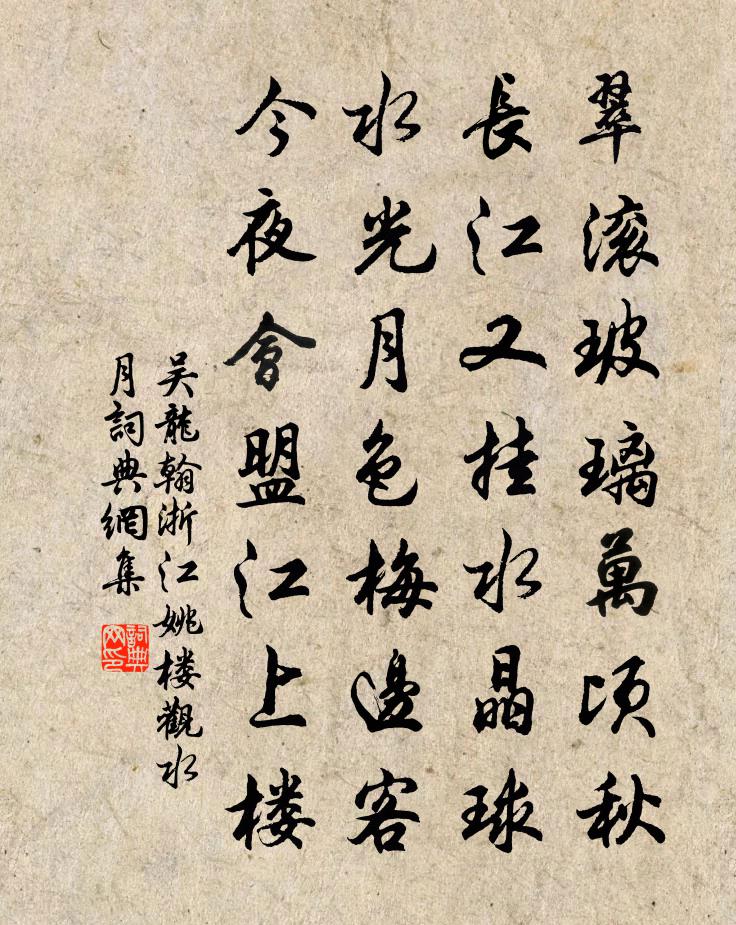 翠滚玻璃萬頃秋
長江又挂水晶球
水光月色梅邊客
今夜會盟江上楼
吴龍翰浙江姚楼觀水
月詞典網集
詞典网印